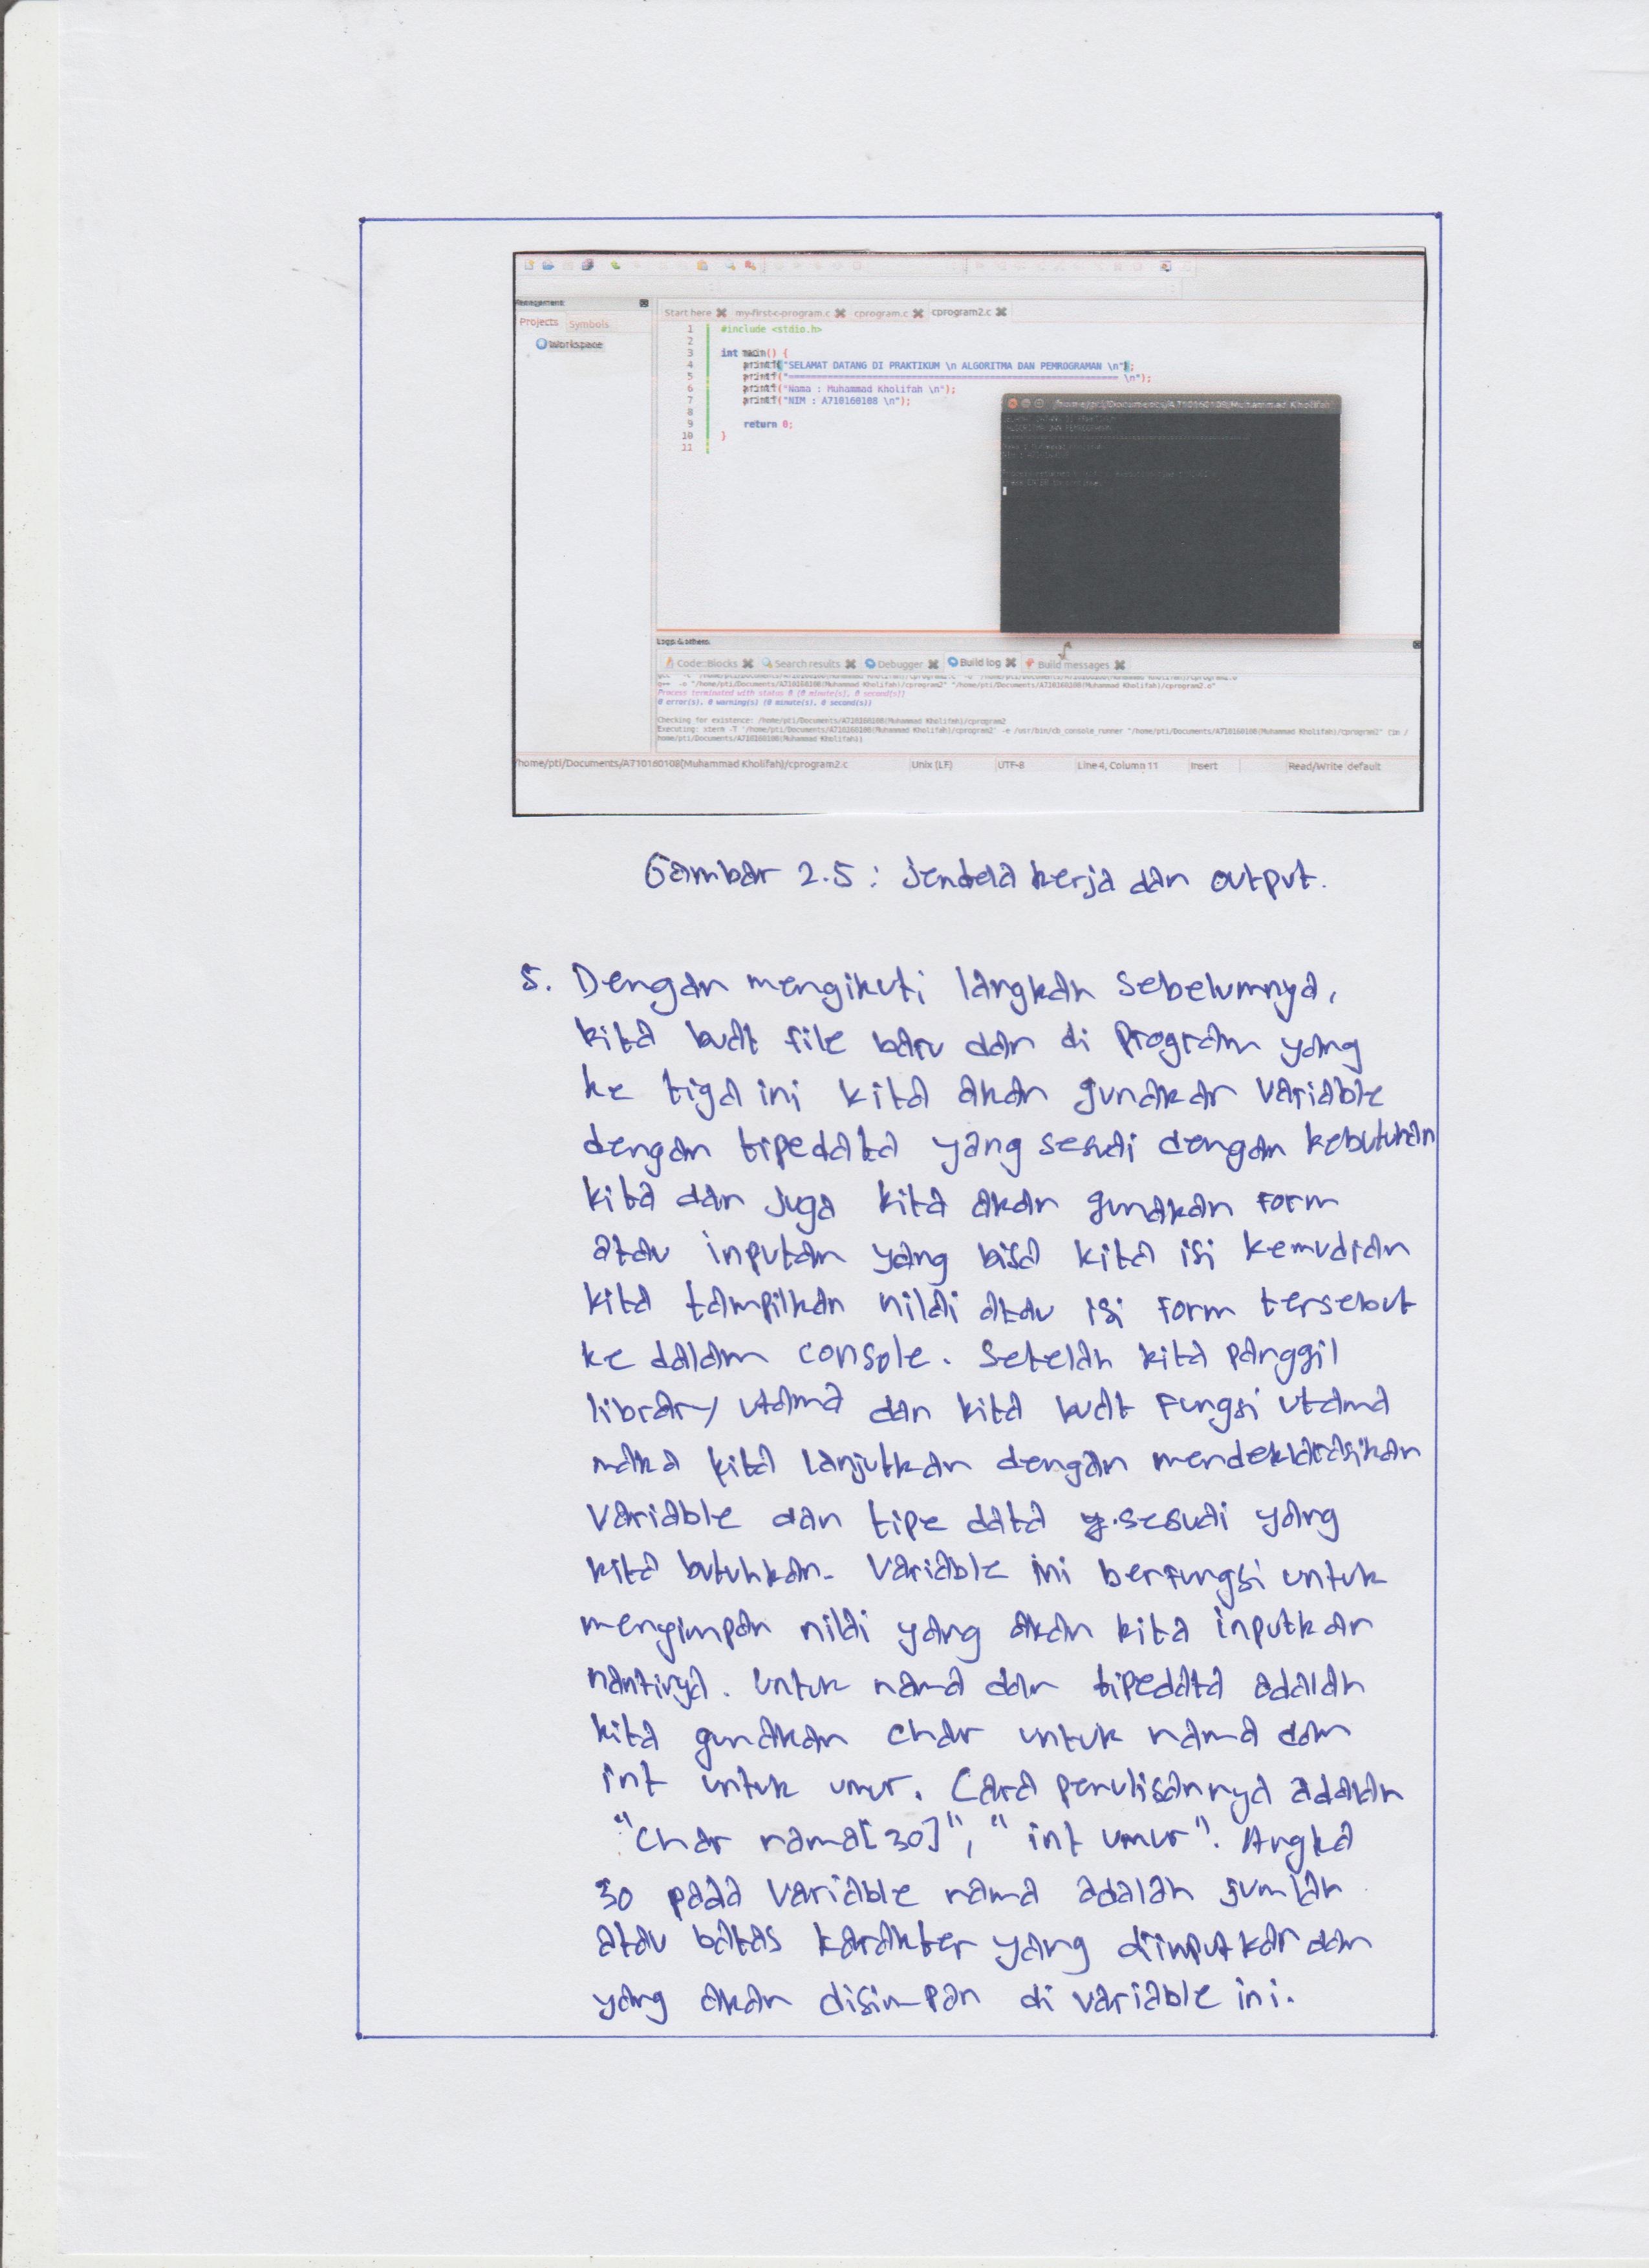 Management
Projects Symbols
Workspace
Start here my-first-c-program.c cprogram.c cprogram2.c
1 #include <stdio.h>
2
3 int main() {
4 printf("SELAMAT DATANG DI PRAKTIKUM \n ALGORITMA DAN PEMROGRAMAN \n");
5 printf("============================================================ \n");
6 printf("Nama : Muhammad Kholifah \n");
7 printf("NIM : A710160108 \n");
8
9 return 0;
10 }
11
/home/pti/Documents/A710160108(Muhammad Kholifah)
Logs & others
Code::Blocks Search results Debugger Build log Build messages
g++ -o "/home/pti/Documents/A710160108(Muhammad Kholifah)/cprogram2" "/home/pti/Documents/A710160108(Muhammad Kholifah)/cprogram2.o"
Process terminated with status 0 (0 minute(s), 0 second(s))
0 error(s), 0 warning(s) (0 minute(s), 0 second(s))
Checking for existence: /home/pti/Documents/A710160108(Muhammad Kholifah)/cprogram2
Executing: xterm -T '/home/pti/Documents/A710160108(Muhammad Kholifah)/cprogram2' -e /usr/bin/cb_console_runner "/home/pti/Documents/A710160108(Muhammad Kholifah)/cprogram2" (in /
home/pti/Documents/A710160108(Muhammad Kholifah))
/home/pti/Documents/A710160108(Muhammad Kholifah)/cprogram2.c Unix (LF) UTF-8 Line 4, Column 11 Insert Read/Write default
Gambar 2.5 : Jendela kerja dan output.
5. Dengan mengikuti langkah sebelumnya,
kita buat file baru dan di program yang
ke tiga ini kita akan gunakan variable
dengan tipedata yang sesuai dengan kebutuhan
kita dan juga kita akan gunakan form
atau inputan yang bisa kita isi kemudian
kita tampilkan nilai atau isi form tersebut
ke dalam console. Setelah kita panggil
library utama dan kita buat fungsi utama
maka kita lanjutkan dengan mendeklarasikan
variable dan tipe data sesuai yang
kita butuhkan. Variable ini berfungsi untuk
menyimpan nilai yang akan kita inputkan
nantinya. Untuk nama dan tipedata adalah
kita gunakan char untuk nama dan
int untuk umur. Cara penulisannya adalah
"char nama[30]", "int umur". Angka
30 pada variable nama adalah jumlah
atau batas karakter yang diinputkan dan
yang akan disimpan di variable ini.